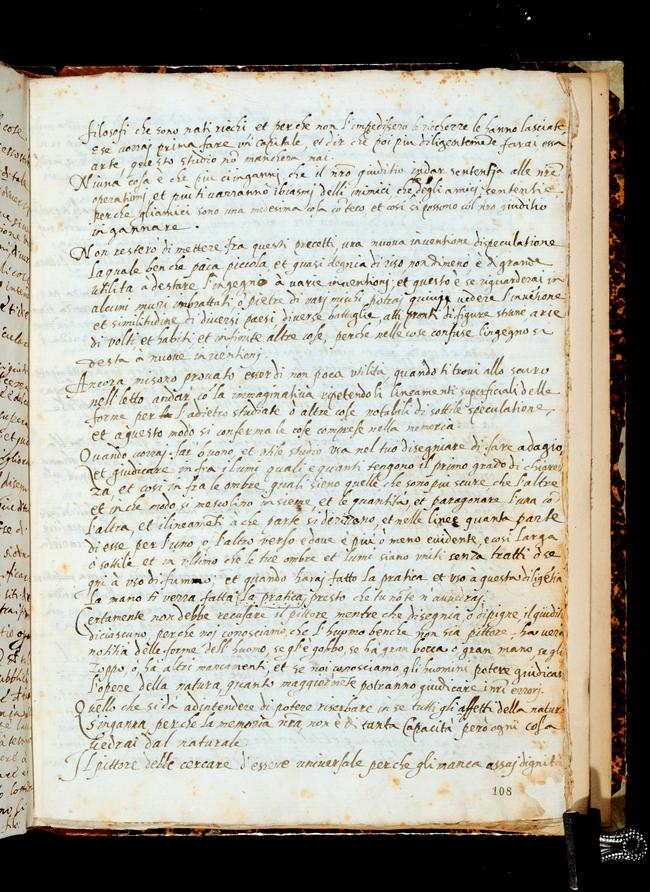 filosofi che sono nati ricchi et perche non l'impedisero le richezze le hanno lasciate,
e se vorraj prima fare un capitale, et dir che poi piu diligentemente farai essa
arte, questo studio nõ mancherà mai.
Niuna cosa è che piu c'inganni, che il nrõ giuditio in dar sententia alle nrẽ
operationi, et piu ti varranno i biasmi delli inimici che degli amici, le sententie
perche gli amici sono una medesima cosa cõ teco et così si possono col nrõ giuditio
ingannare.
Non resterò di mettere fra questi precetti, una nuova inventione di speculatione
la quale ben che paia piccola, et quasi degnia di riso nondimeno è di grande
utilità à destare l'ingegno à varie inventionj et questo è se riguarderai in
alcuni muri imbrattati, o pietre di varij mischi potraj quivi vedere l'inventione
et similitudine di diversi paesi diverse battaglie, atti pronti di figure strane arie
di volti et habiti et infinite altre cose, perche nelle cose confuse l'ingegno si
desta à nuove inventionj.
Ancora misono provato esser di non poca utilità quando ti trovi allo scuro
nell letto andar cõ la immaginativa ripetendo li lineamenti superficiali delle
forme per l'adietro studiate o altre cose notabili di sottile speculatione,
et a questo modo si confermano le cose comprese nella memoria.
Quando vorraj far buono, et utile studio usa nel tuo disegniare di fare adagio,
et giudicare in fra i lumi quali e quanti tengono il primo grado di chiarez
za, et così in fra le ombre quali sieno quelle che sono piu scure che l'altre
et in che modo si mescolino insieme et le quantità, et paragonare l'una cõ
l'altra, et i lineamẽti à che parte si derizono, et nelle linee quanta parte
di esse per l'uno e l'altro verso e dove è piu ò meno evidente e così larga
ò sottile et in ultimo che le tue ombre et lumi siano uniti senza tratti ò se
gni à uso di fummo, et quando haraj fatto la pratica et uso à questa diligẽtia
la mano ti verra fatta la pratica presto che tu nõ te n'avvedraj.
Certamente non debbe recusare il pittore mentre che disegnia, o dipigne il giuditio
di ciascuno, perche noj conosciamo, che l'huomo benche non sia pittore, ha vera
notitia delle forme dell'huomo, se gl'è gobbo, se hà gran bocca o gran mano, se gl'è
zoppo ò hà altri mancamenti, et se noi conosciamo gli huomini potere giudicar
l'opere della natura, quanto maggiormẽte potranno giudicare i nrĩ errorj.
Quello che si dà ad intendere di potere riserbare in se tutti gli affetti della natur
s'inganna perche la memoria nrã non è di tanta capacità però ogni cosa
vedrai dal naturale
Il pittore debbe cercare d'essere universale perche gli manca assaj dignità
108